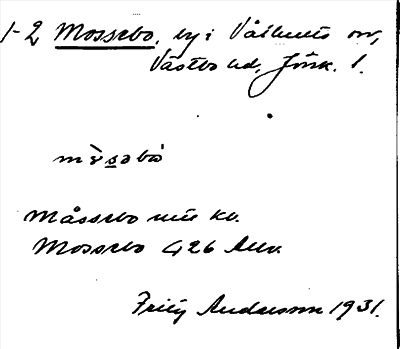 1-2 Mossebo, by i Våthults sn,
Västbo hd, Jönk. l.
mòsəbo
Måssebo utt. kv.
Mossebo 426 Auv.
Fritz Andersson 1931.